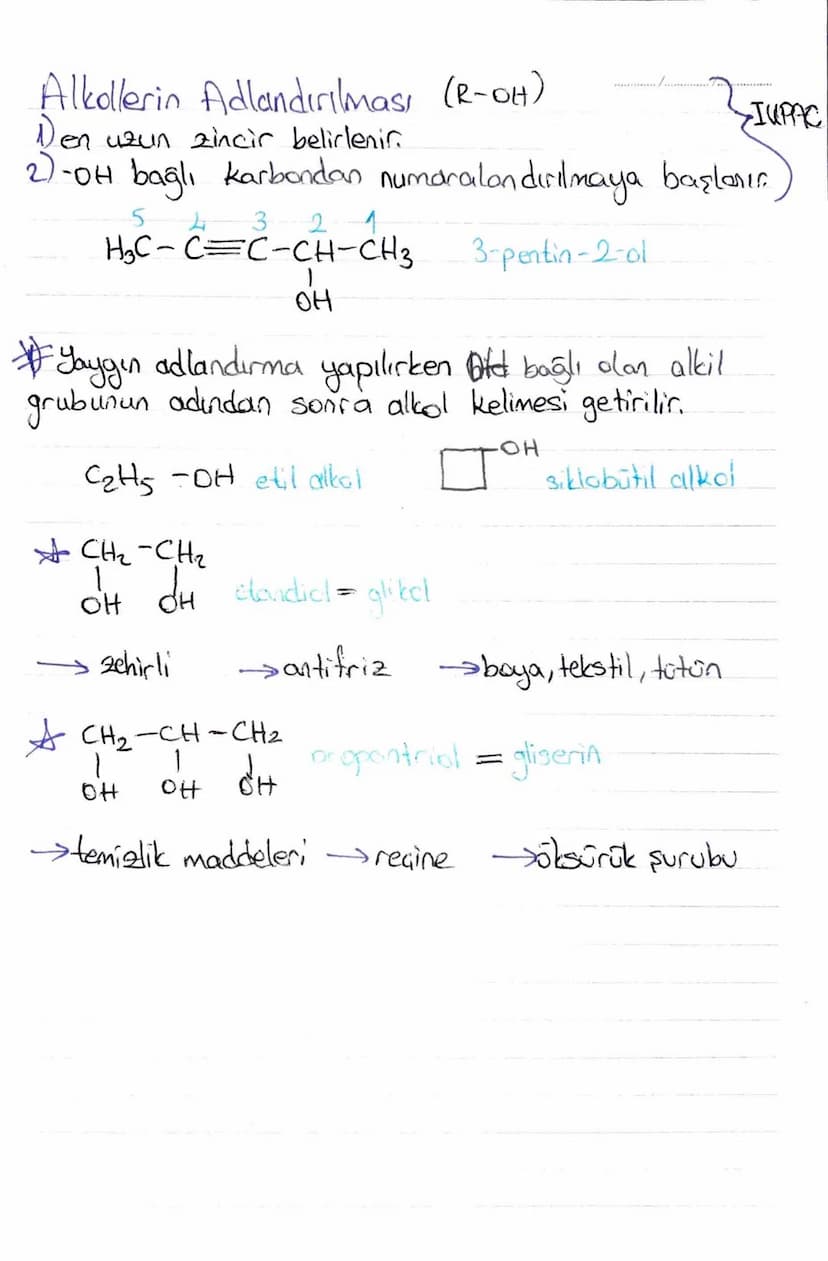 Alkollerin Adlandırılması (R-OH)
IUPAC
1) en uzun zincir belirlenir.
2) -OH bağlı karbondan numaralandırılmaya başlanır.
5 4 3 2 1
H₃C-C≡C-CH-CH₃ 3-pentin-2-ol
OH
* Yaygın adlandırma yapılırken bağlı olan alkil
grubunun adından sonra alkol kelimesi getirilir.
C₂H₅-OH etil alkol OH siklobütil alkol
☆ CH₂-CH₂
OH OH etandiol = glikol
→ zehirli → antifriz → boya, tekstil, tütün
☆ CH₂-CH-CH₂
OH OH OH propantriol = gliserin
→ temizlik maddeleri → reçine → öksürük şurubu